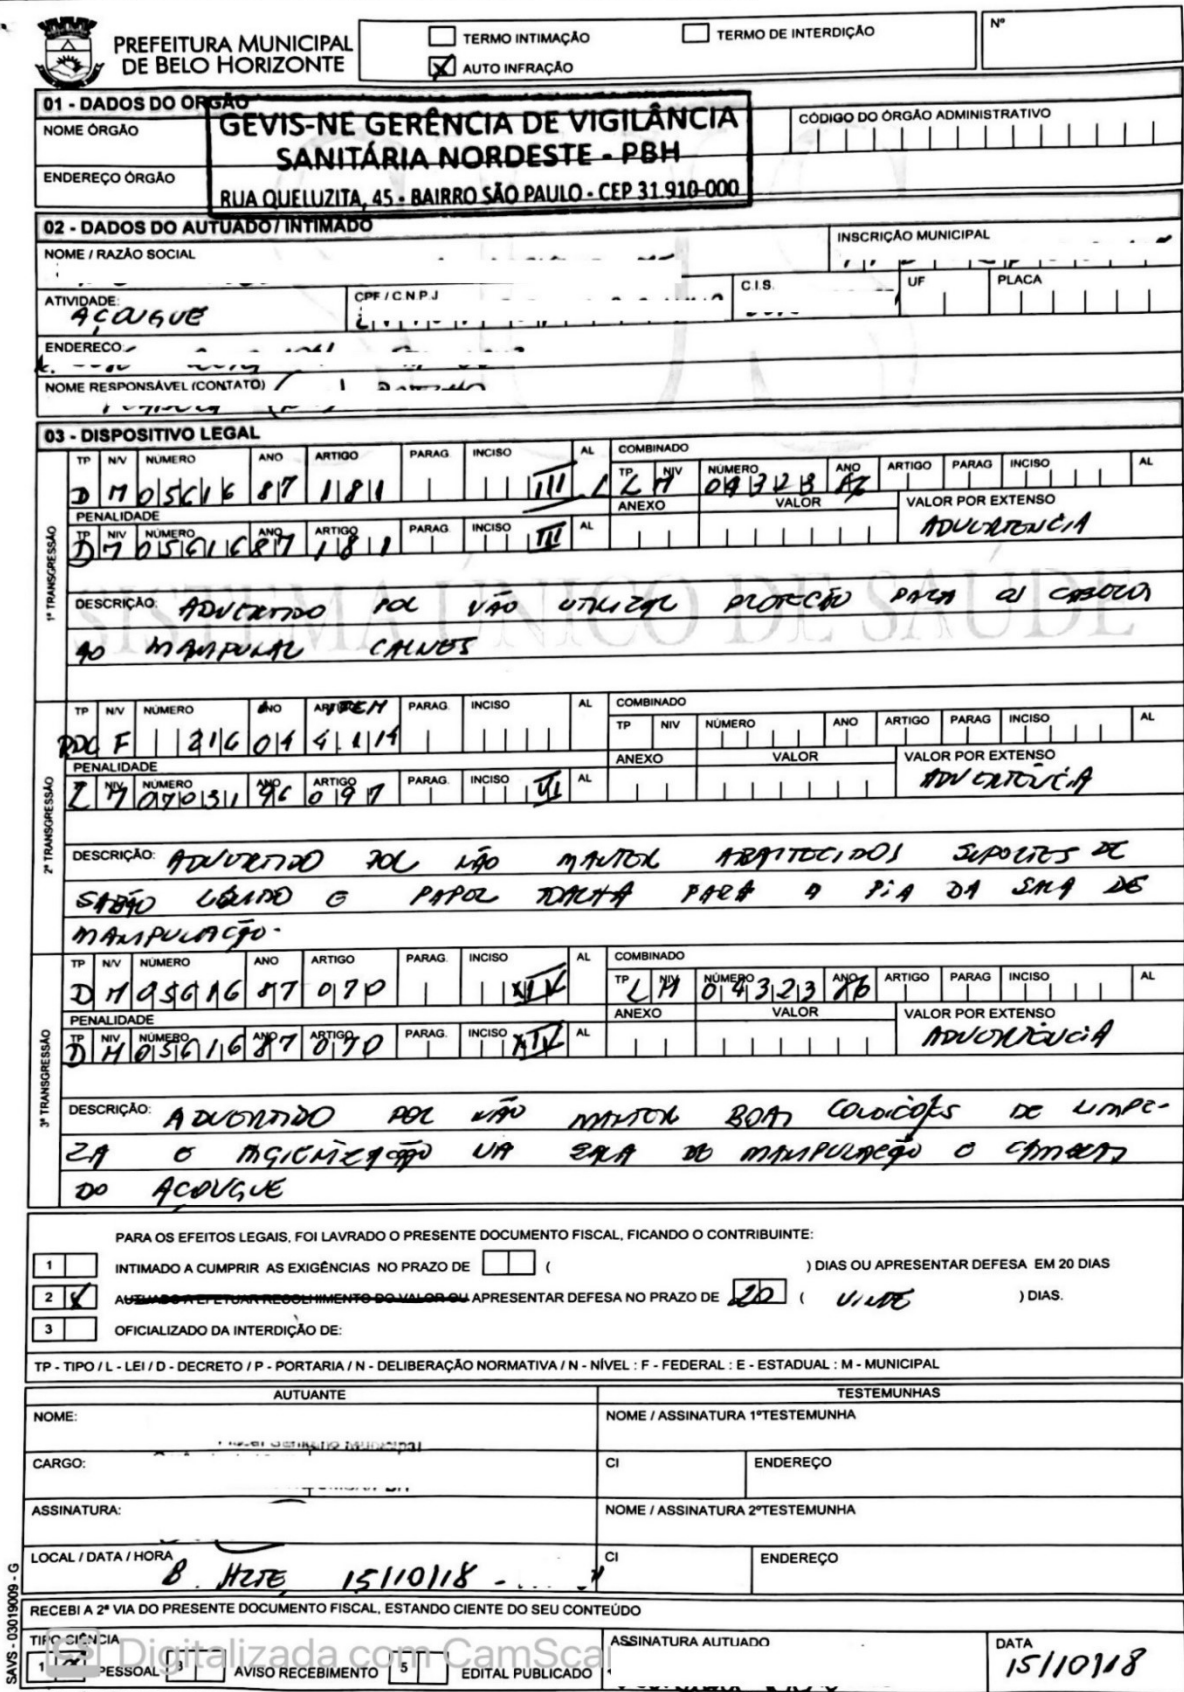 PREFEITURA MUNICIPAL
DE BELO HORIZONTE
TERMO INTIMAÇÃO
TERMO DE INTERDIÇÃO
X AUTO INFRAÇÃO
Nº
01 - DADOS DO ORGÃO
NOME ÓRGÃO
GEVIS-NE GERÊNCIA DE VIGILÂNCIA
SANITÁRIA NORDESTE - PBH
RUA QUELUZITA, 45 - BAIRRO SÃO PAULO - CEP 31.910-000
CÓDIGO DO ÓRGÃO ADMINISTRATIVO
ENDEREÇO ÓRGÃO
02 - DADOS DO AUTUADO / INTIMADO
NOME / RAZÃO SOCIAL
INSCRIÇÃO MUNICIPAL
ATIVIDADE:
AÇOUGUE
CPF / C.N.P.J
C.I.S.
UF
PLACA
ENDERECO
NOME RESPONSÁVEL (CONTATO)
03 - DISPOSITIVO LEGAL
1ª TRANSGRESSÃO
TP N/V NÚMERO ANO ARTIGO PARAG INCISO AL COMBINADO
D M 05616 87 181 III
TP NIV NÚMERO ANO ARTIGO PARAG INCISO AL
L M 04323
PENALIDADE
ANEXO VALOR VALOR POR EXTENSO
TP NIV NÚMERO ANO ARTIGO PARAG. INCISO AL
D M 05616 87 181 III ADVERTENCIA
DESCRIÇÃO: ADVERTIDO POR NÃO UTILIZAR PROTEÇÃO PARA OS CABELOS
AO MANIPULAR CARNES
SISTEMA ÚNICO DE SAÚDE
2ª TRANSGRESSÃO
TP N/V NÚMERO ANO ARTIGO ITEM PARAG. INCISO AL COMBINADO
RDC F 216 04 4.1.14
TP NIV NÚMERO ANO ARTIGO PARAG INCISO AL
PENALIDADE
ANEXO VALOR VALOR POR EXTENSO
TP NIV NÚMERO ANO ARTIGO PARAG. INCISO AL
L M 07031 96 097 ADVERTÊNCIA
DESCRIÇÃO: ADVERTIDO POR NÃO MANTER ABASTECIDOS SUPORTES DE
SABÃO LÍQUIDO E PAPEL TOALHA PARA A PIA DA SALA DE
MANIPULAÇÃO.
3ª TRANSGRESSÃO
TP N/V NÚMERO ANO ARTIGO PARAG. INCISO AL COMBINADO
D M 05616 87 070 XIV
TP NIV NÚMERO ANO ARTIGO PARAG INCISO AL
L M 04323 86
PENALIDADE
ANEXO VALOR VALOR POR EXTENSO
TP NIV NÚMERO ANO ARTIGO PARAG. INCISO AL
D M 05616 87 070 XIV ADVERTÊNCIA
DESCRIÇÃO: ADVERTIDO POR NÃO MANTER BOAS CONDIÇÕES DE LIMPE-
ZA E HIGIENIZAÇÃO NA SALA DE MANIPULAÇÃO E CAMARAS
DO AÇOUGUE
PARA OS EFEITOS LEGAIS, FOI LAVRADO O PRESENTE DOCUMENTO FISCAL, FICANDO O CONTRIBUINTE:
1 INTIMADO A CUMPRIR AS EXIGÊNCIAS NO PRAZO DE ( ) DIAS OU APRESENTAR DEFESA EM 20 DIAS
2 X AUTUADO A EFETUAR RECOLHIMENTO DO VALOR OU APRESENTAR DEFESA NO PRAZO DE 20 ( VINTE ) DIAS.
3 OFICIALIZADO DA INTERDIÇÃO DE:
TP - TIPO / L - LEI / D - DECRETO / P - PORTARIA / N - DELIBERAÇÃO NORMATIVA / N - NÍVEL : F - FEDERAL : E - ESTADUAL : M - MUNICIPAL
AUTUANTE
TESTEMUNHAS
NOME:
NOME / ASSINATURA 1ªTESTEMUNHA
CARGO:
CI
ENDEREÇO
ASSINATURA:
NOME / ASSINATURA 2ªTESTEMUNHA
LOCAL / DATA / HORA
B. HZTE, 15/10/18 -
CI
ENDEREÇO
RECEBI A 2ª VIA DO PRESENTE DOCUMENTO FISCAL, ESTANDO CIENTE DO SEU CONTEÚDO
TIPO CIÊNCIA
1 X PESSOAL 3 AVISO RECEBIMENTO 5 EDITAL PUBLICADO
ASSINATURA AUTUADO
DATA
15/10/18
Digitalizada com CamSca
SAVS - 03019009 - G